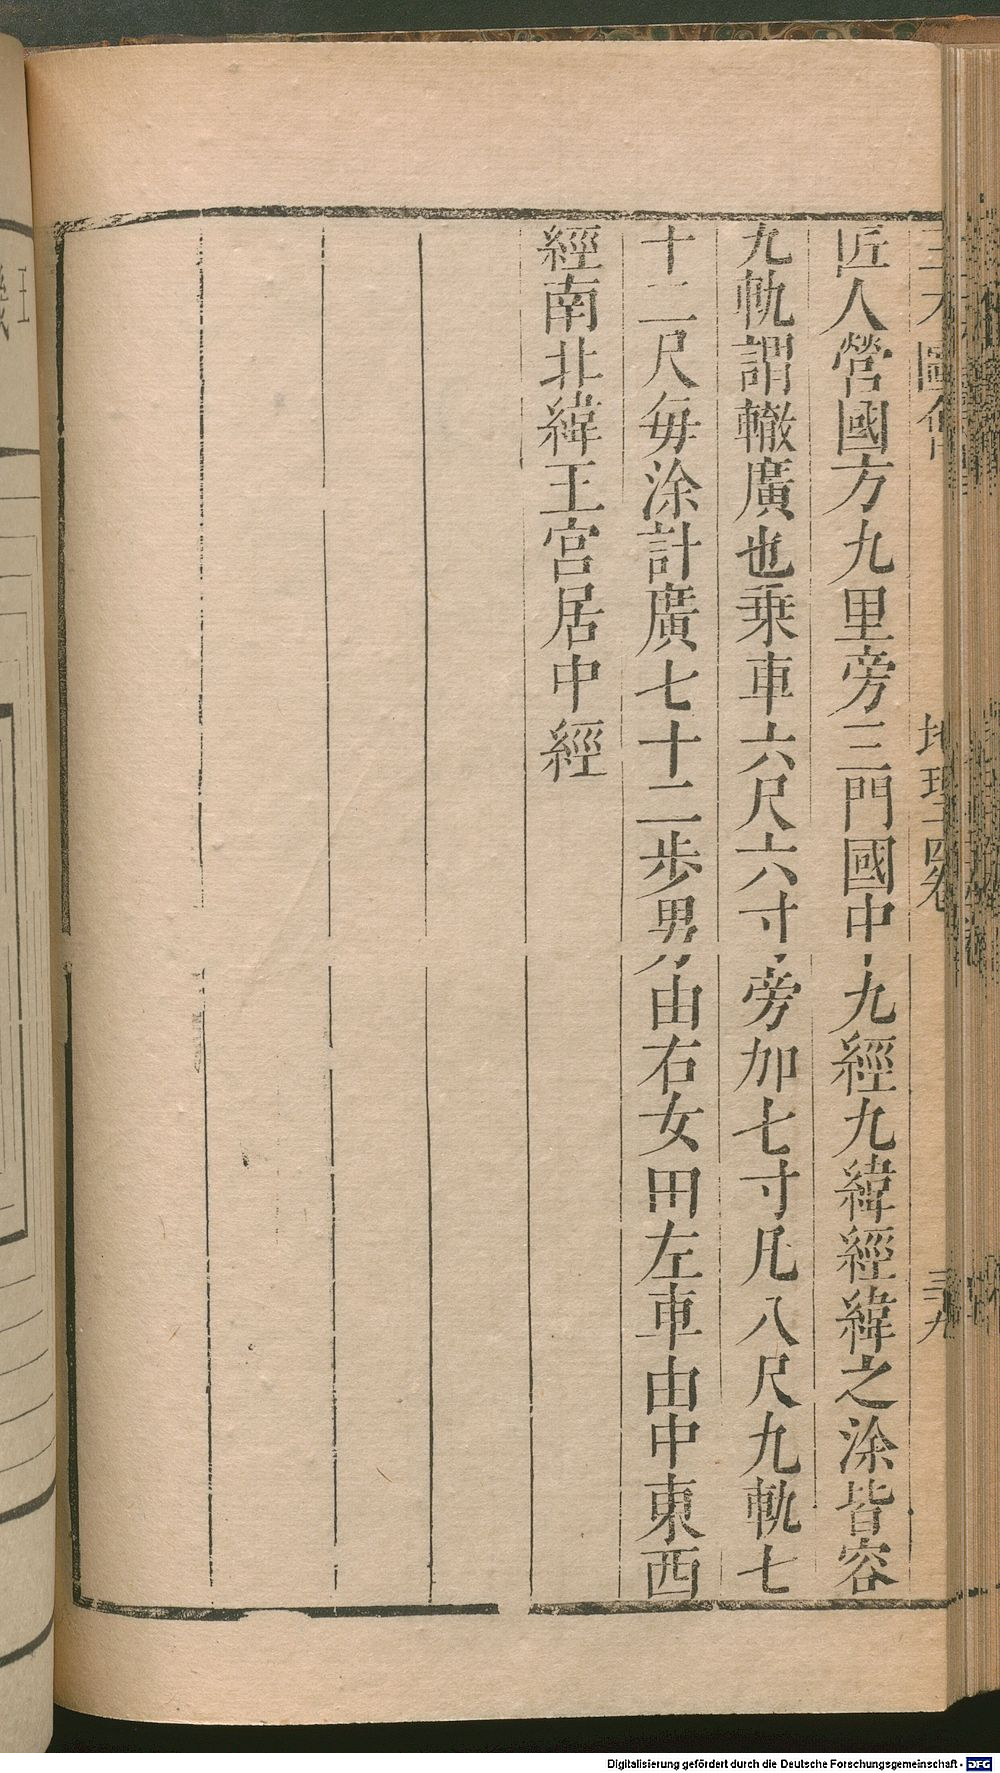 三才圖會 地理四卷 三十九
匠人營國方九里旁三門國中九經九緯經緯之涂皆容
九軌謂轍廣也乗車六尺六寸旁加七寸凡八尺九軌七
十二尺每涂計廣七十二歩男由右女由左車由中東西
經南北緯王宮居中經
王
Digitalisierung gefördert durch die Deutsche Forschungsgemeinschaft - DFG